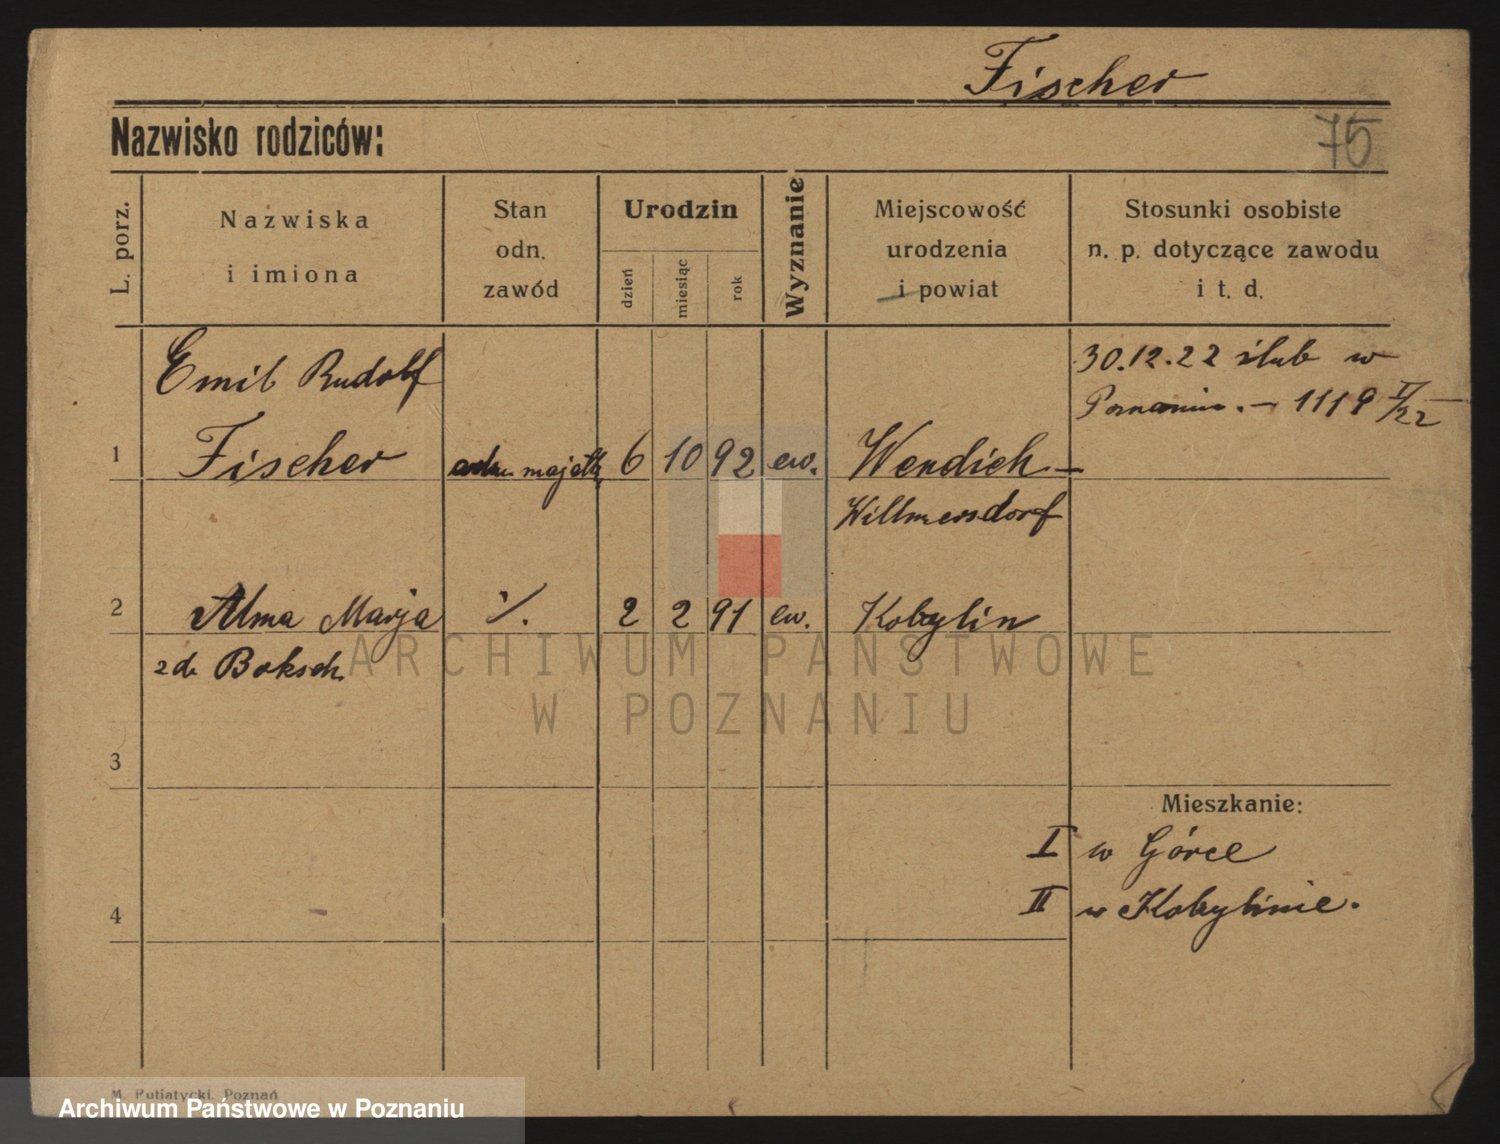 Fischer
Nazwisko rodziców:
75
L. porz.
Nazwiska
i imiona
Stan
odn.
zawód
Urodzin
dzień
miesiąc
rok
Wyznanie
Miejscowość
urodzenia
i powiat
Stosunki osobiste
n. p. dotyczące zawodu
i t. d.
Emil Rudolf
30.12.22 ślub w
Poznaniu. - 1119 II/22
1 Fischer adm. majątk. 6 10 92 ew. Wendich-
Willmersdorf
2 Alma Marja ·/. 2 2 91 ew. Kobylin
z d. Boksch.
ARCHIWUM PAŃSTWOWE
W POZNANIU
3
Mieszkanie:
I w Górce
4
II w Kobylinie.
M. Putiatycki, Poznań
Archiwum Państwowe w Poznaniu